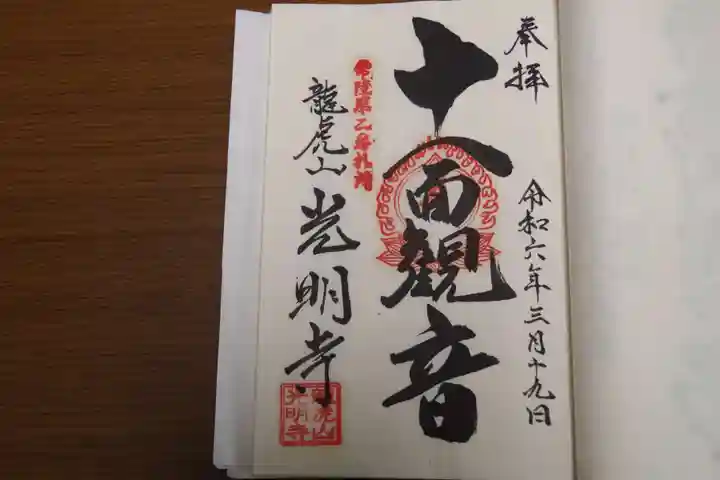 奉拝
令和六年三月十九日
十一面観音
龍虎山光明寺
龍虎山
光明寺